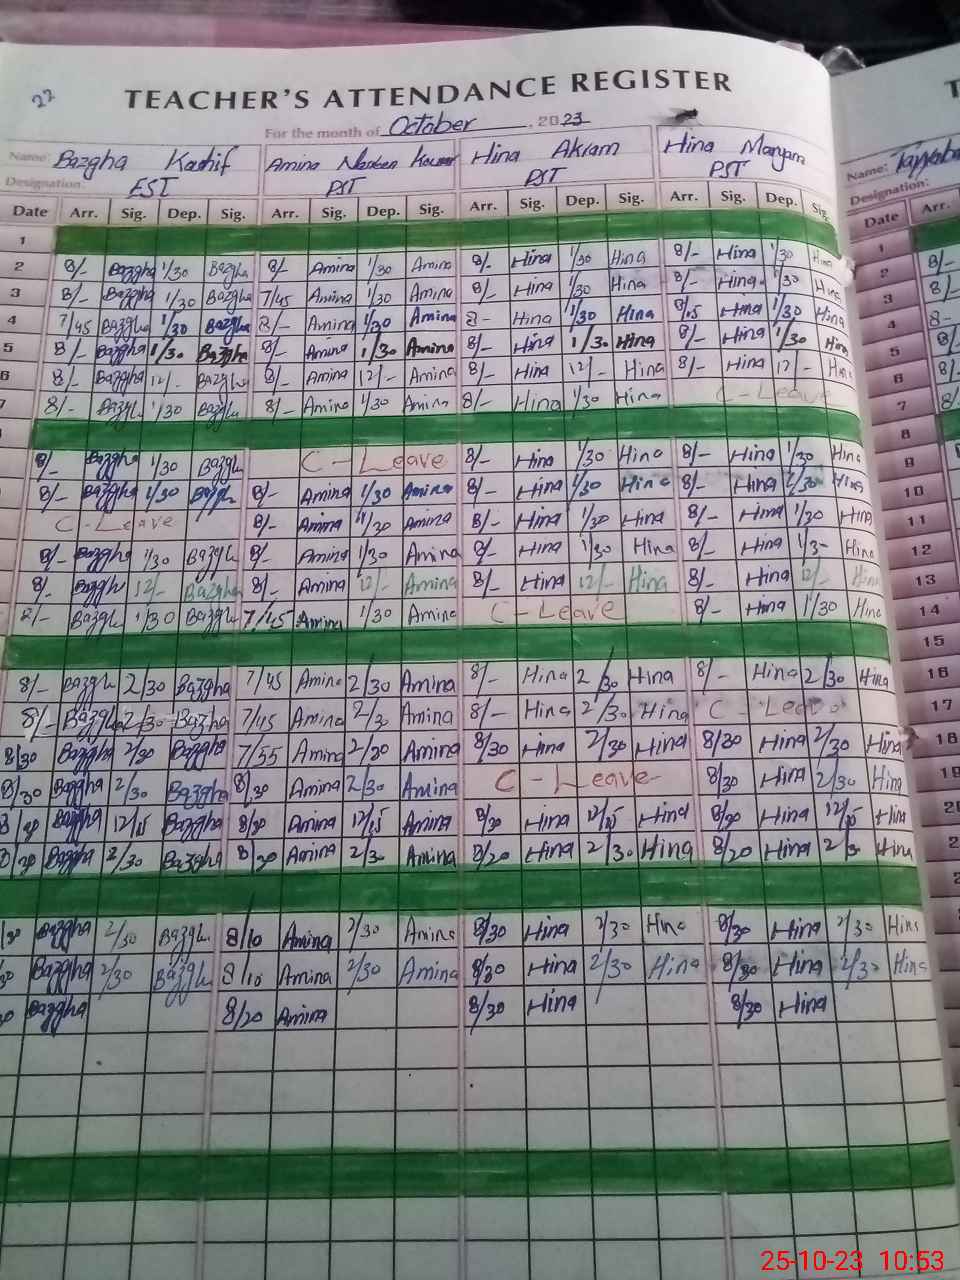 22
TEACHER'S ATTENDANCE REGISTER
For the month of October, 2023
Name: Bazgha Kashif Amina Nasreen Kausar Hina Akram Hina Maryam Name: Tayyaba
Designation: EST PST PST PST Designation:
Date Arr. Sig. Dep. Sig. Arr. Sig. Dep. Sig. Arr. Sig. Dep. Sig. Arr. Sig. Dep. Sig. Date Arr.
1 1
2 8/- Bazgha 1/30 Bazgha 8/- Amina 1/30 Amina 8/- Hina 1/30 Hina 8/- Hina 1/30 Hina 2 8/-
3 8/- Bazgha 1/30 Bazgha 7/45 Amina 1/30 Amina 8/- Hina 1/30 Hina 8/- Hina 1/30 Hina 3 8/-
4 7/45 Bazgha 1/30 Bazgha 8/- Amina 1/30 Amina 8- Hina 1/30 Hina Hina 1/30 Hina 4 8-
5 8/- Bazgha 1/30 Bazgha 8/- Amina 1/30 Amina 8/- Hina 1/30 Hina 8/- Hina 1/30 Hina 5 8/-
6 8/- Bazgha 12/- Bazgha 8/- Amina 12/- Amina 8/- Hina 12/- Hina 8/- Hina 12/- Hina 6 8/-
7 8/- Bazgha 1/30 Bazgha 8/- Amina 1/30 Amina 8/- Hina 1/30 Hina C-Leave 7 8/-
8
8/- Bazgha 1/30 Bazgha C-Leave 8/- Hina 1/30 Hina 8/- Hina 1/30 Hina 9
8/- Bazgha 1/30 Bazgha 8/- Amina 1/30 Amina 8/- Hina 1/30 Hina 8/- Hina 1/30 Hina 10
C-Leave 8/- Amina 1/30 Amina 8/- Hina 1/30 Hina 8/- Hina 1/30 Hina 11
8/- Bazgha 1/30 Bazgha 8/- Amina 1/30 Amina 8/- Hina 1/30 Hina 8/- Hina 1/3- Hina 12
8/- Bazgha 12/- Bazgha 8/- Amina 12/- Amina 8/- Hina 12/- Hina 8/- Hina 12/- Hina 13
8/- Bazgha 1/30 Bazgha 7/45 Amina 1/30 Amina C-Leave 8/- Hina 1/30 Hina 14
15
8/- Bazgha 2/30 Bazgha 7/45 Amina 2/30 Amina 8/- Hina 2/30 Hina 8/- Hina 2/30 Hina 16
8/- Bazgha 2/30 Bazgha 7/45 Amina 2/30 Amina 8/- Hina 2/30 Hina C-Leave 17
8/30 Bazgha 2/30 Bazgha 7/55 Amina 2/30 Amina 8/30 Hina 2/30 Hina 8/30 Hina 2/30 Hina 18
8/30 Bazgha 2/30 Bazgha 8/30 Amina 2/30 Amina C-Leave 8/30 Hina 2/30 Hina 19
8/30 Bazgha 12/15 Bazgha 8/30 Amina 12/15 Amina 8/30 Hina 12/15 Hina 8/30 Hina 12/15 Hina
8/30 Bazgha 2/30 Bazgha 8/30 Amina 2/30 Amina 8/20 Hina 2/30 Hina 8/20 Hina 2/30 Hina
Bazgha 2/30 Bazgha 8/10 Amina 2/30 Amina 8/30 Hina 2/30 Hina 8/30 Hina 2/30 Hina
Bazgha 2/30 Bazgha 8/10 Amina 2/30 Amina 8/30 Hina 2/30 Hina 8/30 Hina 2/30 Hina
Bazgha 8/20 Amina 8/30 Hina 8/30 Hina
25-10-23 10:53